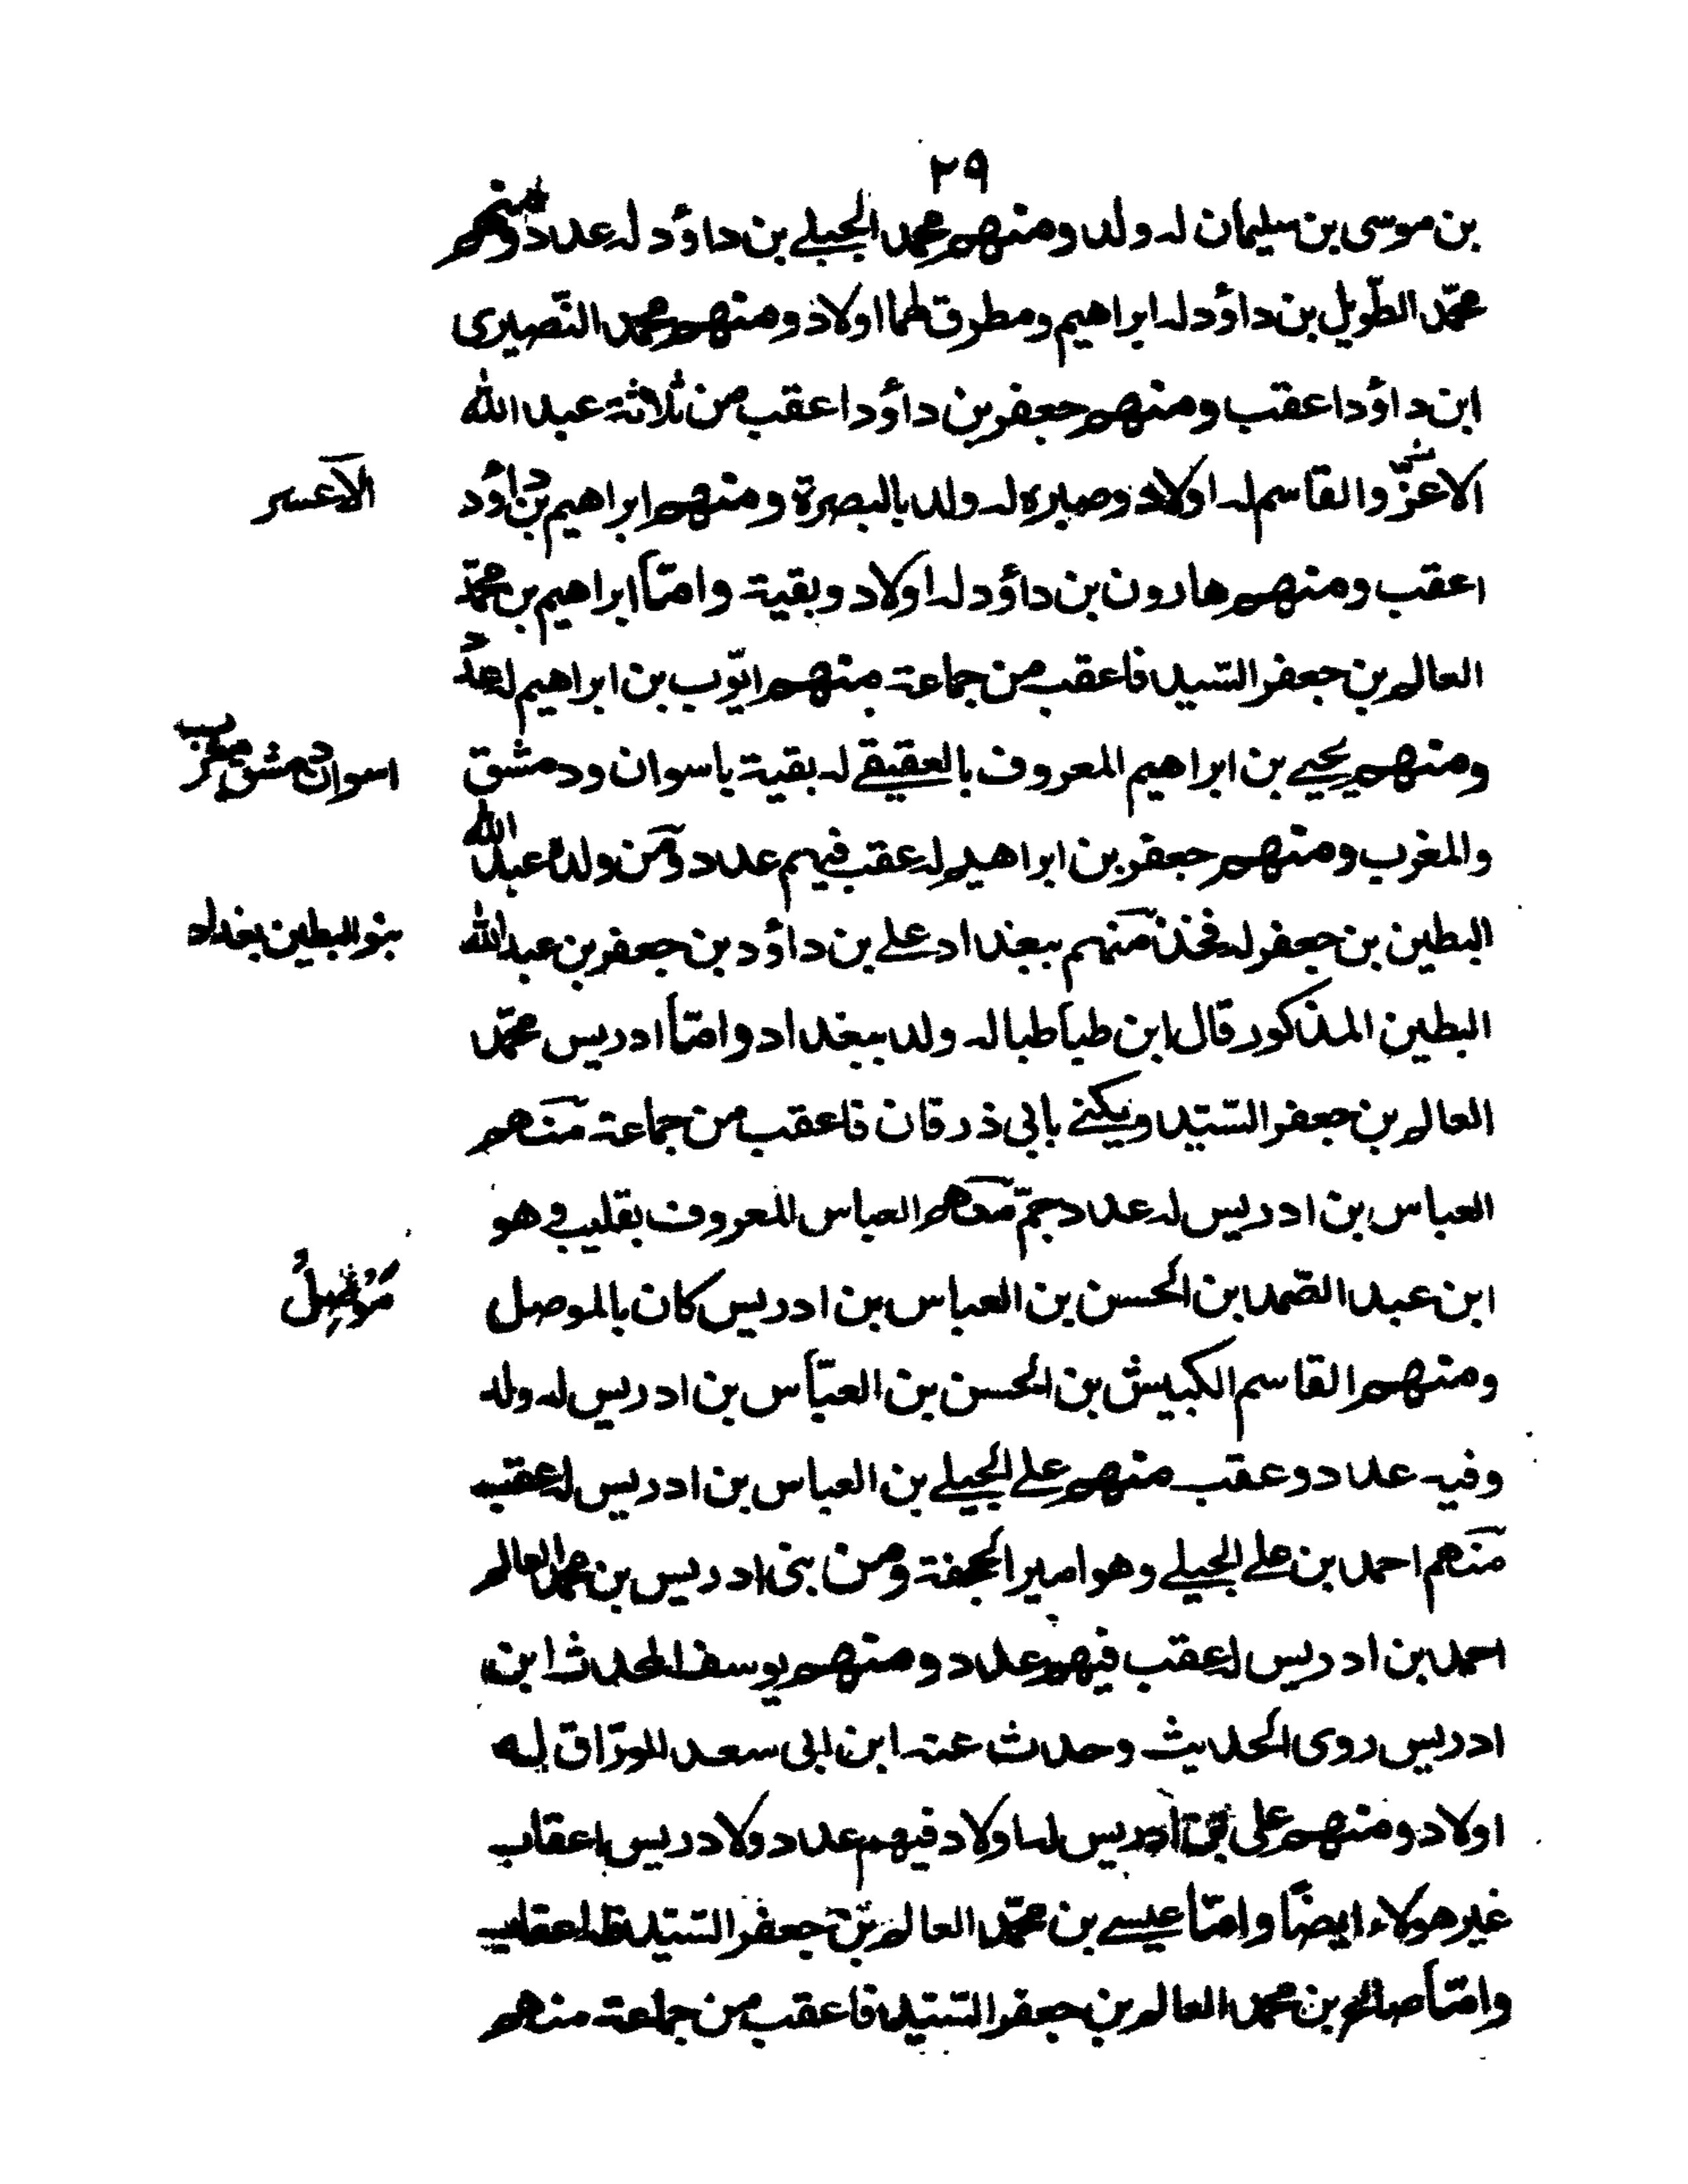 ٢٩
بن موسى بن سليمان له ولد ومنهم محمد الجبلے بن داؤد له عدد ومنهم
محمّد الطّويل بن داؤد له ابراهيم ومطرق لهما اولاد ومنهم محمد النّصيرى
ابن داؤد اعقب ومنهم جعفر بن داؤد اعقب من ثلاثة عبد الله
الاعزّ والقاسم له اولاد وصبره له ولد بالبصرة ومنهم ابراهيم بن داؤد
الاعسر
اعقب ومنهم هارون بن داؤد له اولاد وبقية وامّا ابراهيم بن محمّد
العالم بن جعفر السّيد فاعقب من جماعة منهم ايّوب بن ابراهيم له عدد
ومنهم يحيے بن ابراهيم المعروف بالعقيقے له بقية باسوان ودمشق
اسوان دمشق مغرب
والمغرب ومنهم جعفر بن ابراهيم له عقب فيهم عدد ومن ولده عبد الله
البطين بن جعفر له فخذ منهم ببغداد علے بن داؤد بن جعفر بن عبد الله
بنو البطين بغداد
البطين المذكور قال ابن طباطبا له ولد ببغداد وامّا ادريس محمّد
العالم بن جعفر السّيّد ويكنے بابى ذرقان فاعقب من جماعة منهم
العباس بن ادريس له عدد جمّ منهم العباس المعروف بقليب وهو
ابن عبد الصّمد ابن الحسن بن العباس بن ادريس كان بالموصل
موصل
ومنهم القاسم الكبيش بن الحسن بن العبّاس بن ادريس له ولد
وفيه عدد وعقب منهم علے الجبلے بن العباس بن ادريس له عقب
منهم احمد بن علے الجبلے وهو امير الجحفة ومن بنى ادريس بن محمد العالم
احمد بن ادريس له عقب فيهم عدد ومنهم يوسف المحدث ابن
ادريس روى الحديث وحدث عنه ابن ابى سعد الورّاق له
اولاد ومنهم على بن ادريس له اولاد فيهم عدد ولادريس اعقاب
غير هولاء ايضًا وامّا عيسے بن محمّد العالم بن جعفر السّيّد فله اعقاب
وامّا صالح بن محمد العالم بن جعفر السّيّد فاعقب من جماعة منهم